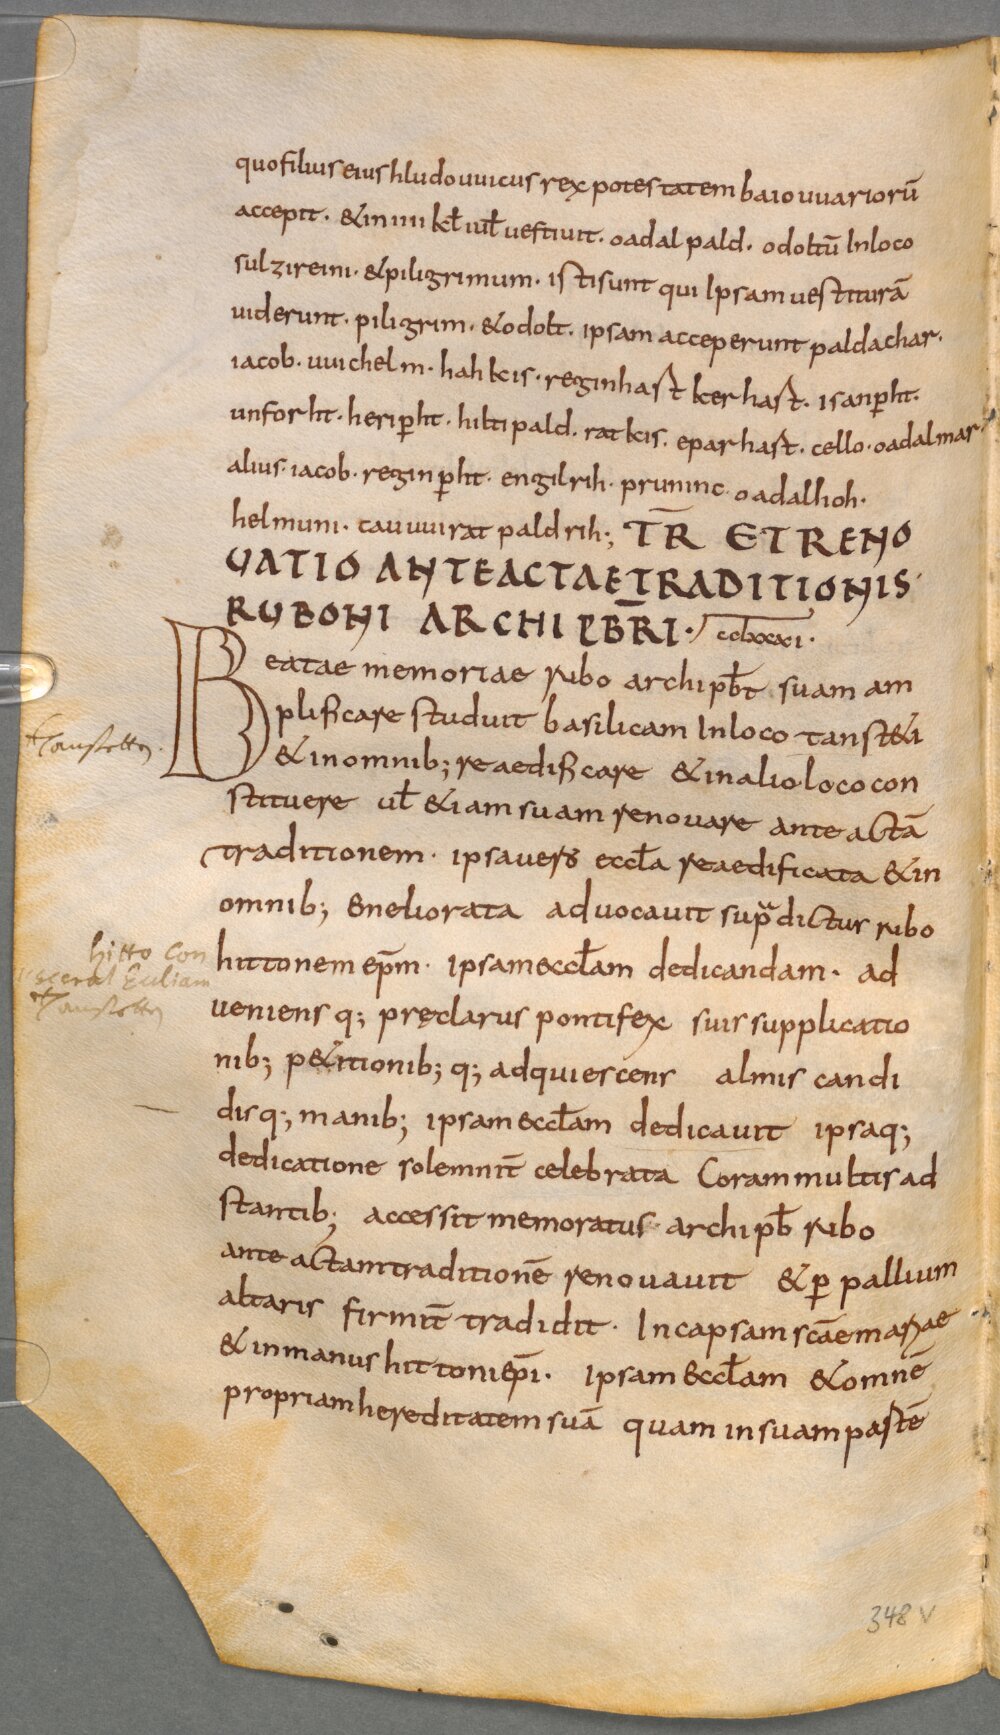 quo filius eius hludouuicus rex potestatem baiouuariorū
accepit · & in iiii kł iuł uestiuit · oadalpald · odoltū In loco
sulzireini · & piligrimum · isti sunt qui Ipsam uestiturā
uiderunt · piligrim · & odolt · ipsam acceperunt paldachar ·
iacob · uuichelm · hahkis · reginhast kerhast · isanp̄ht ·
unforht · herip̄ht · hiltipald · ratkis · eparhast · cello · oadalmar ·
alius · iacob · reginp̄ht · engilrih · pruninc · oadalhoh ·
helmuni · tauuuirat paldrih ; TR̄ ET RENO
UATIO ANTEACTAE TRADITIONIS ·
RUBONI ARCHI PB̄RI · ccclxxxi ·
Beatae memoriae ribo archi pb̄t suam am
plificare studuit basilicam In loco tanst&i
& in omnib; reaedificare & in alio loco con
stituere uł &iam suam renouare ante actā
traditionem · ipsa uero eccła reaedificata & in
omnib; emeliorata aduocauit supradictus ribo
hittonem ep̄m · ipsam eccłam dedicandam · ad
ueniens q; pręclarus pontifex suis supplicatio
nib; p&itionib; q; adquiescens almis candi
dis q; manib; ipsam eccłam dedicauit ipsaq;
dedicatione solemnit̄ celebrata Coram multis ad
stantib; accessit memoratus archi pb̄ ribo
ante actam traditionē renouauit & ꝑ pallium
altaris firmit̄ tradidit · In capsam scāe mariae
& in manus hittoni ep̄i · ipsam eccłam & omnē
propriam hereditatem suā quam in suam pastē
Tanstetten
hitto con
secrat Eccliam
Tanstetten
348 v